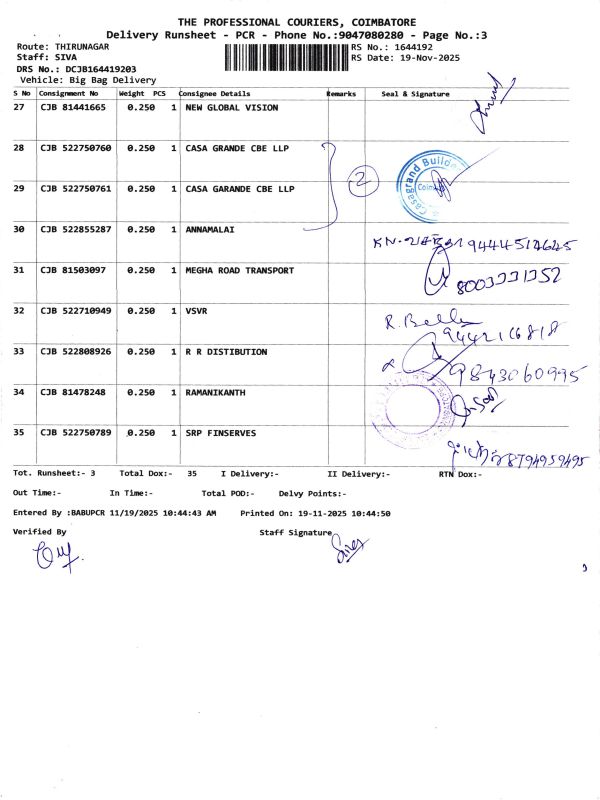 THE PROFESSIONAL COURIERS, COIMBATORE
Delivery Runsheet - PCR - Phone No.:9047080280 - Page No.:3
Route: THIRUNAGAR RS No.: 1644192
Staff: SIVA RS Date: 19-Nov-2025
DRS No.: DCJB164419203
Vehicle: Big Bag Delivery
S No Consignment No Weight PCS Consignee Details Remarks Seal & Signature
27 CJB 81441665 0.250 1 NEW GLOBAL VISION
28 CJB 522750760 0.250 1 CASA GRANDE CBE LLP
2
Casagrand Builde
Coim
29 CJB 522750761 0.250 1 CASA GARANDE CBE LLP
30 CJB 522855287 0.250 1 ANNAMALAI
9444514645
31 CJB 81503097 0.250 1 MEGHA ROAD TRANSPORT
32 CJB 522710949 0.250 1 VSVR
9442116818
33 CJB 522808926 0.250 1 R R DISTIBUTION
9843060995
34 CJB 81478248 0.250 1 RAMANIKANTH
35 CJB 522750789 0.250 1 SRP FINSERVES
8794959495
Tot. Runsheet:- 3 Total Dox:- 35 I Delivery:- II Delivery:- RTN Dox:-
Out Time:- In Time:- Total POD:- Delvy Points:-
Entered By :BABUPCR 11/19/2025 10:44:43 AM Printed On: 19-11-2025 10:44:50
Verified By Staff Signature